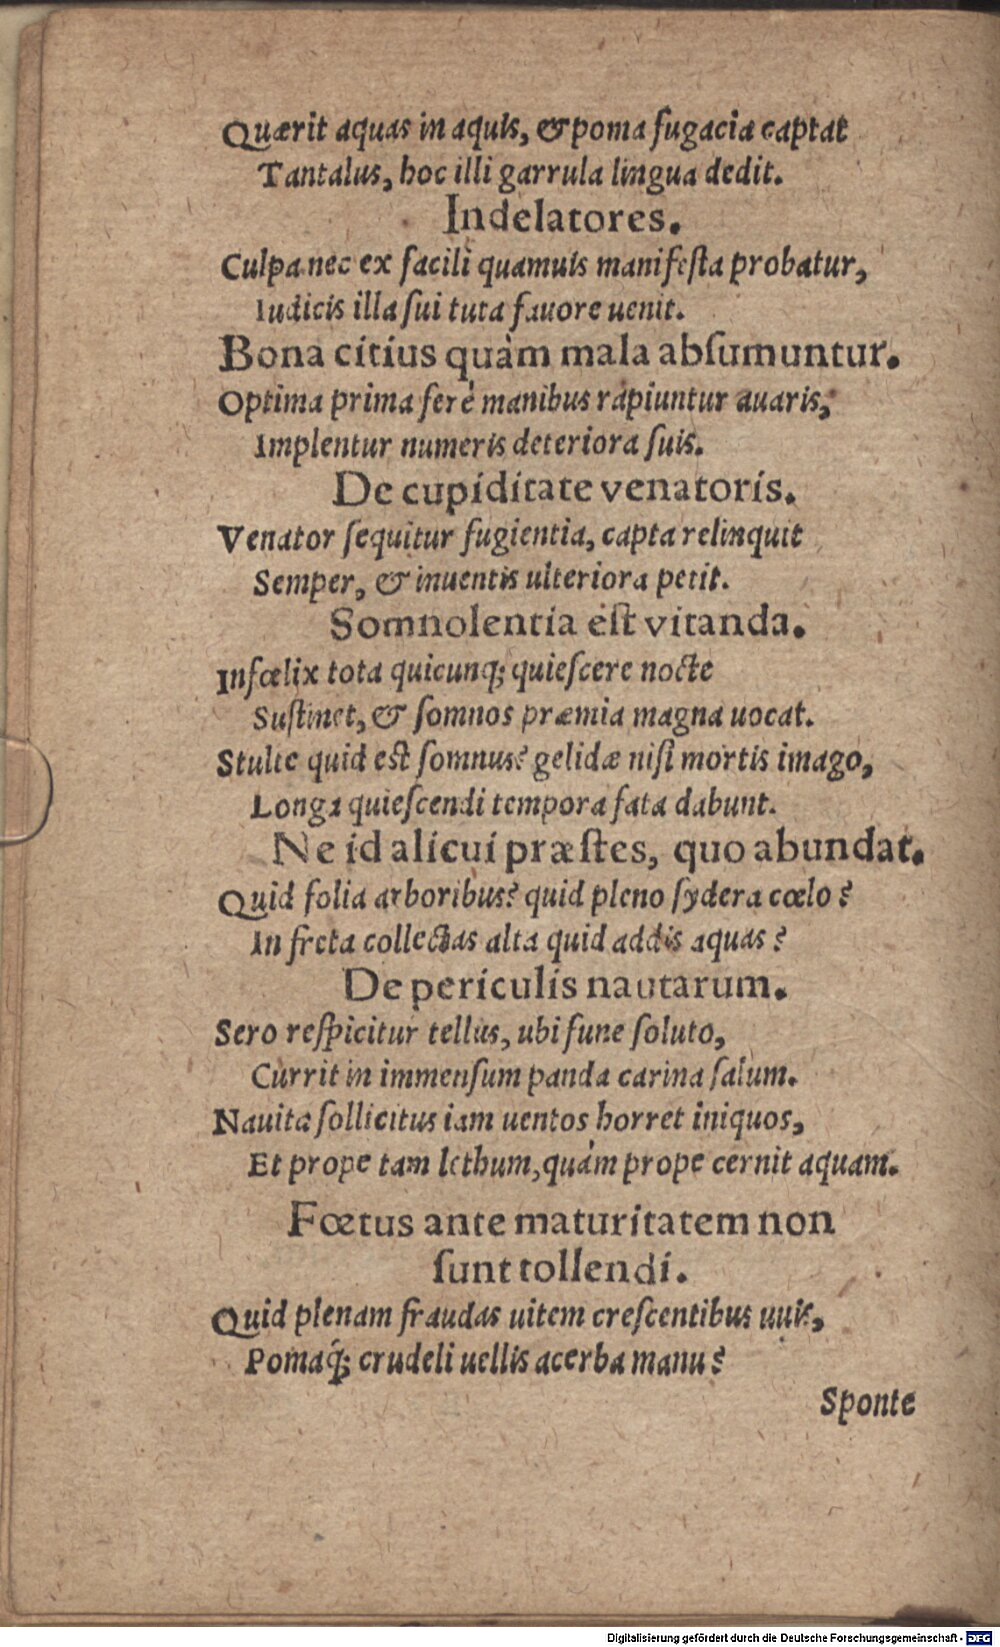 Quærit aquas in aquis, & poma fugacia captat
Tantalus, hoc illi garrula lingua dedit.
Indelatores.
Culpa nec ex facili quamuis manifesta probatur,
Iudicis illa sui tuta fauore uenit.
Bona citius quàm mala absumuntur.
Optima prima ferè manibus rapiuntur auaris,
Implentur numeris deteriora suis.
De cupiditate venatoris.
Venator sequitur fugientia, capta relinquit
Semper, & inuentis ulteriora petit.
Somnolentia est vitanda.
Infœlix tota quicunq; quiescere nocte
Sustinet, & somnos præmia magna uocat.
Stulte quid est somnus? gelidæ nisi mortis imago,
Longa quiescendi tempora fata dabunt.
Ne id alicui præstes, quo abundat.
Quid folia arboribus? quid pleno sydera cœlo?
In freta collectas alta quid addis aquas?
De periculis nautarum.
Sero respicitur tellus, ubi fune soluto,
Currit in immensum panda carina salum.
Nauita sollicitus iam uentos horret iniquos,
Et prope tam lethum, quàm prope cernit aquam.
Fœtus ante maturitatem non
sunt tollendi.
Quid plenam fraudas uitem crescentibus uuis,
Pomaq́; crudeli uellis acerba manu?
Sponte
Digitalisierung gefördert durch die Deutsche Forschungsgemeinschaft - DFG